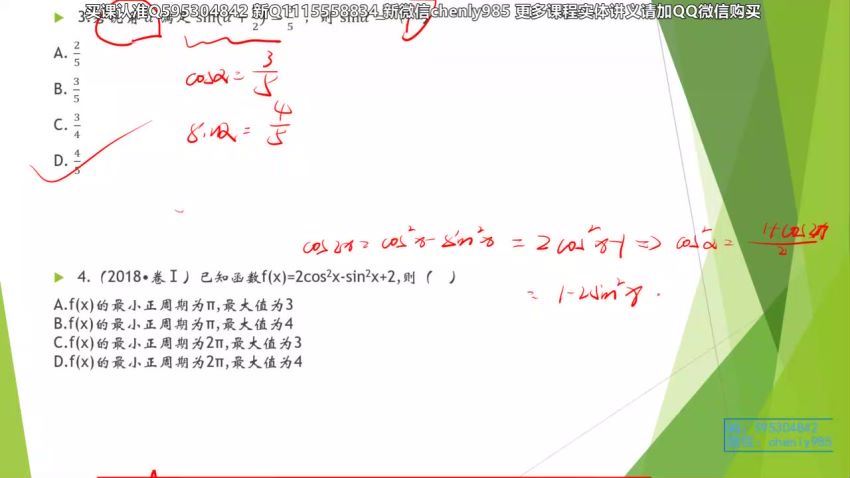 买课认准Q595304842 新Q1115558834 新微信chenly985 更多课程实体讲义请加QQ微信购买
A. 2/5
B. 3/5
C. 3/4
D. 4/5
cosα = 3/5
sinα = 4/5
cos2x = cos²x - sin²x = 2cos²x-1 => cos²α = 1+cos2x/2
= 1-2sin²x.
4.(2018•卷Ⅰ)已知函数f(x)=2cos²x-sin²x+2,则( )
A.f(x)的最小正周期为π,最大值为3
B.f(x)的最小正周期为π,最大值为4
C.f(x)的最小正周期为2π,最大值为3
D.f(x)的最小正周期为2π,最大值为4
595304842
chenly985